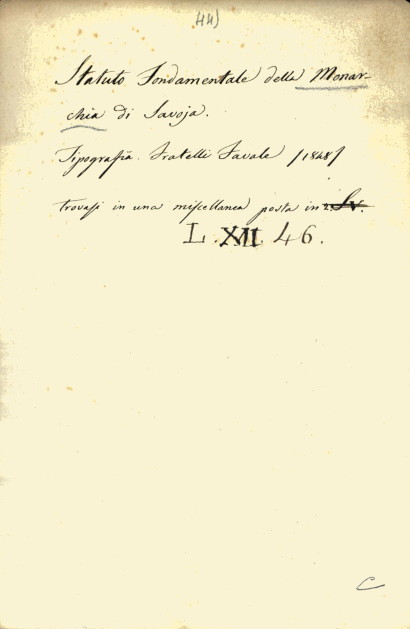 44)
Statuto Fondamentale della Monar-
chia di Savoja.
Tipografia Fratelli Favale /1848/
trovasi in una miscellanea posta in
L. XII. 46.
C